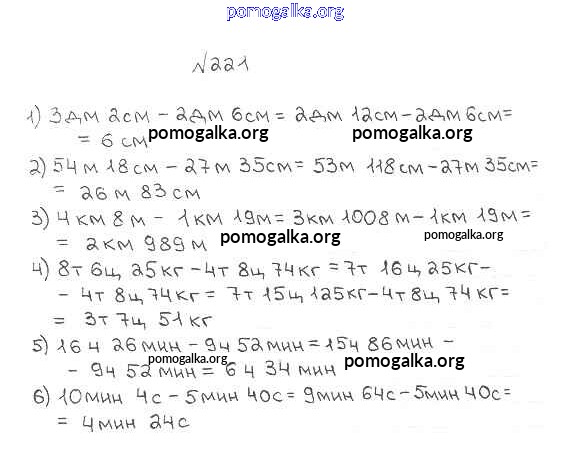 pomogalka.org
№221
1) 3дм 2см - 2дм 6см = 2дм 12см - 2дм 6см =
= 6 см pomogalka.org pomogalka.org
2) 54 м 18 см - 27 м 35 см = 53м 118 см - 27м 35 см =
= 26 м 83 см
3) 4 км 8 м - 1 км 19м = 3км 1008 м - 1 км 19 м =
= 2км 989 м pomogalka.org pomogalka.org
4) 8т 6ц 25кг - 4т 8ц 74кг = 7т 16ц 25кг -
- 4т 8ц 74кг = 7т 15ц 125кг - 4т 8ц 74кг =
= 3т 7ц 51кг
5) 16 ч 26 мин - 9ч 52 мин = 15ч 86 мин -
- 9ч 52 мин = 6 ч 34 мин pomogalka.org pomogalka.org
6) 10мин 4с - 5мин 40с = 9мин 64с - 5мин 40с =
= 4мин 24с